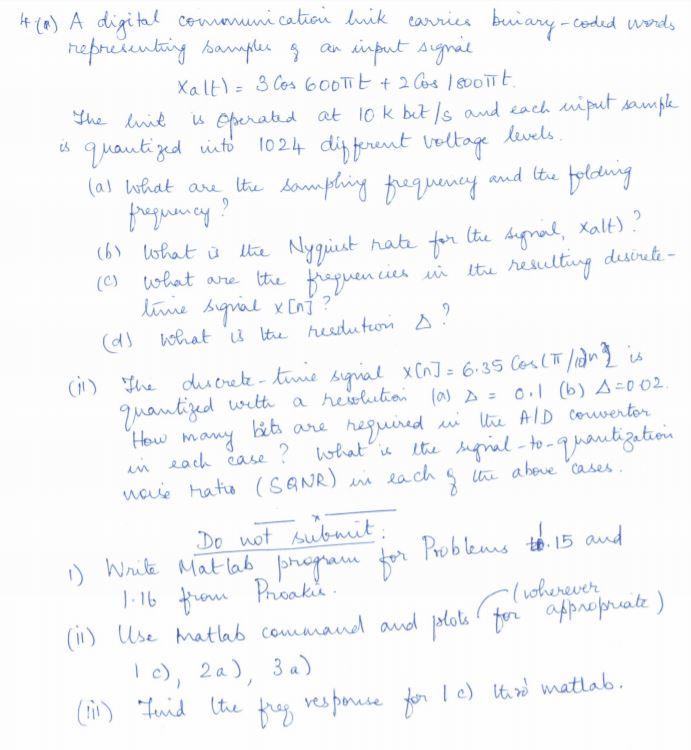 4 (i) A digital communication link carries binary-coded words
representing samples of an input signal
xa(t) = 3 Cos 600πt + 2 Cos 1800πt.
The link is operated at 10 k bit/s and each input sample
is quantized into 1024 different voltage levels.
(a) What are the sampling frequency and the folding
frequency?
(b) What is the Nyquist rate for the signal, xa(t)?
(c) What are the frequencies in the resulting discrete-
time signal x[n]?
(d) What is the resolution Δ?
(ii) The discrete-time signal x[n] = 6.35 Cos(π/10)n is
quantized with a resolution (a) Δ = 0.1 (b) Δ=0.02.
How many bits are required in the A/D convertor
in each case? What is the signal-to-quantization
noise ratio (SQNR) in each of the above cases.
Do not submit:
1) Write Matlab program for Problems 1.15 and
1.16 from Proakis.
(ii) Use Matlab command and plots (wherever
for appropriate)
1 c), 2a), 3a)
(iii) Find the freq response for 1 c) thro' matlab.